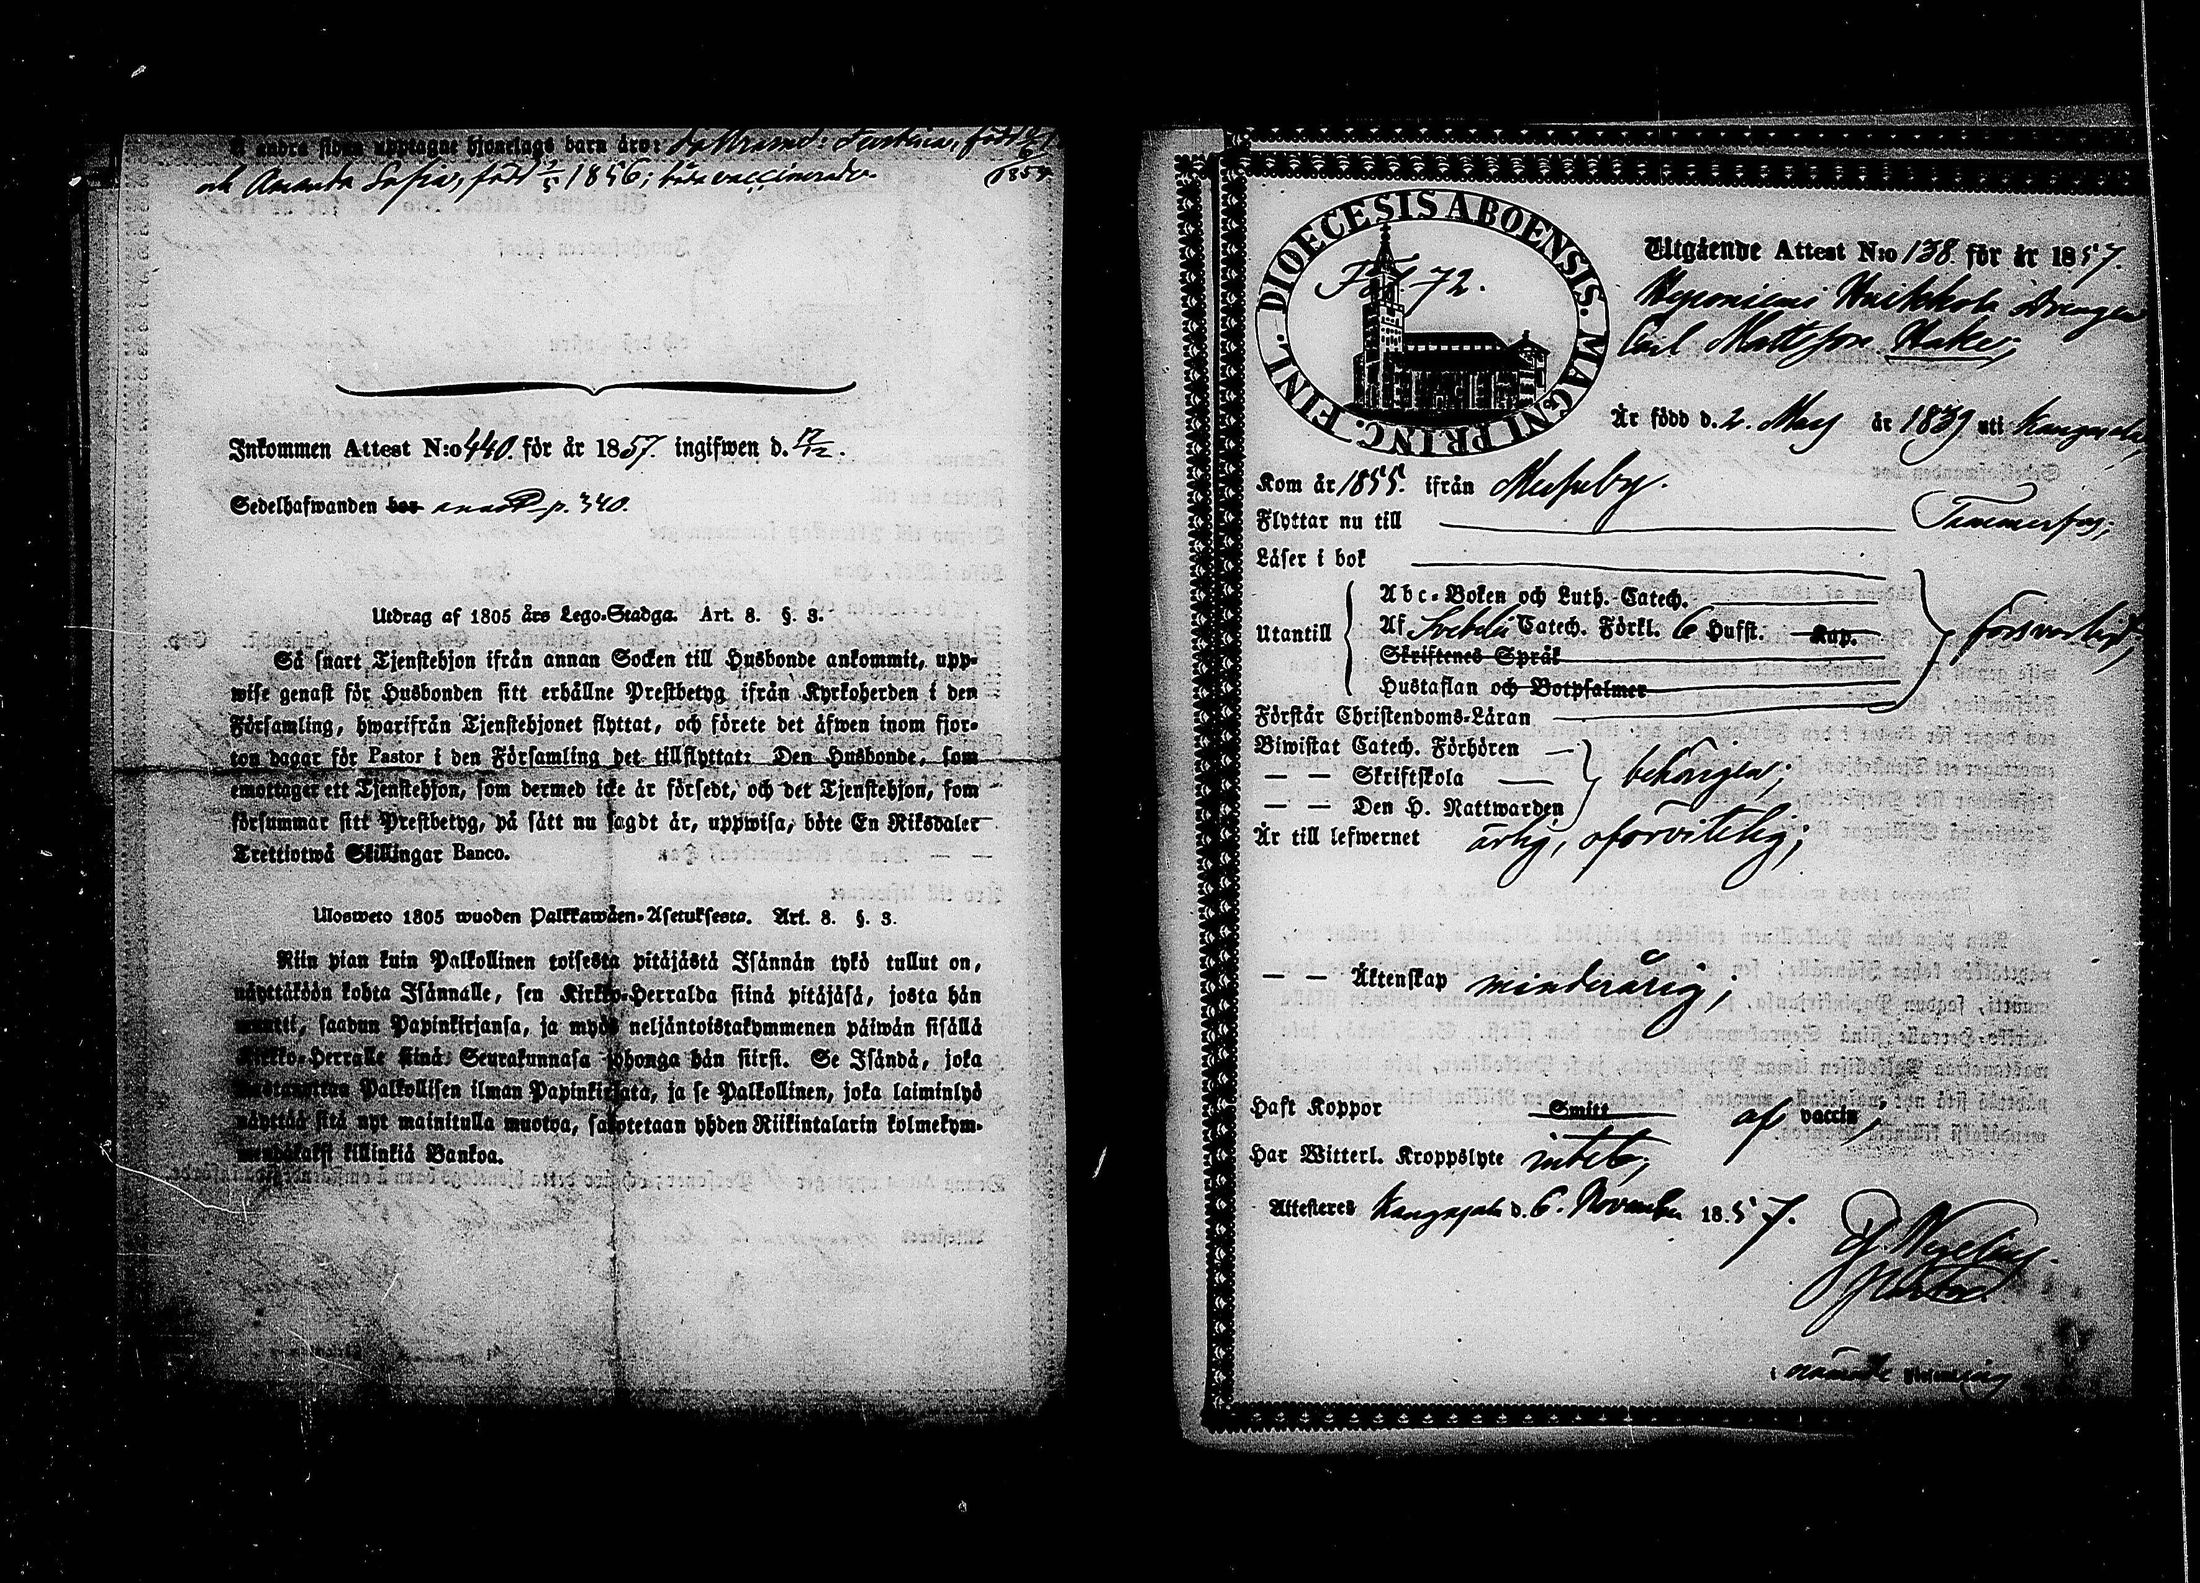 å andra sidan upptagne hjonelags barn äro: födt
och Amanda Sofia, född 2/5 1856; båda vaccinerade. 1854
Inkommen Attest N:o 440. för år 1857. ingifwen d. 17/12.
Sedelhafwanden bor p. 340.
Utdrag af 1805 års Lego-Stadga. Art. 8. §. 3.
Så snart Tjenstehjon ifrån annan Socken till Husbonde ankommit, upp-
wise genast för Husbonden sitt erhållne Prestbetyg ifrån Kyrkoherden i den
Församling, hwarifrån Tjenstehjonet flyttat, och förete det äfwen inom fjor-
ton dagar för Pastor i den Församling det tillflyttat: Den Husbonde, som
emottager ett Tjenstehjon, som dermed icke är försedt, och det Tjenstehjon, som
försummar sitt Prestbetyg, på sätt nu sagdt är, uppwisa, böte En Riksdaler
Trettiotwå Skillingar Banco.
Ulosweto 1805 wuoden Palkkawäen-Asetuksesta. Art. 8. §. 3.
Niin pian kuin Palkollinen toisesta pitäjästä Isännän tykö tullut on,
näyttäköön kohta Isännälle, sen Kirkko-Herralda siinä pitäjäsä, josta hän
muutti, saadun Papinkirjansa, ja myös neljäntoistakymmenen päiwän sisällä
Kirkko-Herralle siinä Seurakunnasa johonga hän siirsi. Se Isändä, joka
wastaanottaa Palkollisen ilman Papinkirjata, ja se Palkollinen, joka laiminlyö
näyttää sitä nyt mainitulla muotoa, sakotetaan yhden Riikintalarin kolmekym-
mendäkaksi killinkiä Bankoa.
DIOECESIS ABOENSIS. MAGNI PRINC. FINL.
Fol. 72.
Utgående Attest N:o 138 för år 1857.
Heponiemi Haikkola drängen
Carl Mattsson Hake;
Är född d. 2. May år 1839 uti Kangasala,
Kom år 1855. ifrån Messuby.
Flyttar nu till Tammerfors;
Läser i bok
Utantill
Abc-Boken och Luth. Catech.
Af Svebelii Catech. Förkl. 6 Hufst. Kap. försvarligt,
Skriftenes Språk
Hustaflan och Botpsalmer
Förstår Christendoms-Läran
Biwistat Catech. Förhören
— — Skriftskola behörigen;
— — Den H. Nattwarden
Är till lefwernet ärlig, oförvitelig;
— — Äktenskap minderårig;
Haft Koppor Smitt af vaccin;
Har Witterl. Kroppslyte intet;
Attesteres Kangasala d. 6. November 1857.